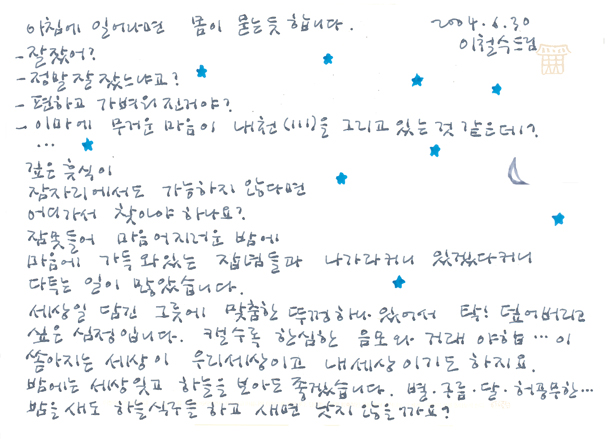 아침에 일어나면 몸이 묻는듯 합니다.
2004.6.30
이철수드림
- 잘잤어?
- 정말 잘 잤느냐고?
- 편하고 가벼워진거야?
- 이마에 무거운 마음이 내천(川)을 그리고 있는것 같은데?
...
깊은 휴식이
잠자리에서도 가능하지 않다면
어디가서 찾아야 하나요?
잠못들어 마음어지러운 밤에
마음에 가득 와있는 잡념들과 나가라커니 있겠다커니
다투는 일이 많았습니다.
세상일 담긴 그릇에 맞춤한 뚜껑하나 있어서 탁! 덮어버리고
싶은 심정입니다. 캘수록 한심한 음모와 거래 야합… 이
쏟아지는 세상이 우리세상이고 내세상이기도 하지요.
밤에는 세상잊고 하늘을 보아도 좋겠습니다. 별·구름·달·허공무한…
밤을 새도 하늘식구들 하고 새면 낫지 않을까요?